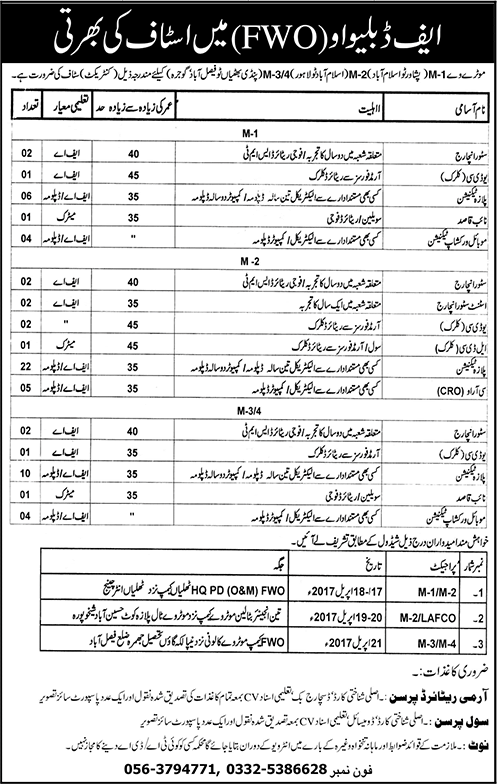 ایف ڈبلیو او (FWO) میں اسٹاف کی بھرتی
موٹروے M-1 (پشاور تو اسلام آباد) M-2 (اسلام آباد تو لاہور) M-3/4 (پنڈی بھٹیاں تو فیصل آباد گوجرہ) کیلئے مندرجہ ذیل (کنٹریکٹ) سٹاف کی ضرورت ہے۔
نام آسامی اہلیت عمر کی زیادہ سے زیادہ حد تعلیمی معیار تعداد
M-1
سٹور انچارج متعلقہ شعبہ میں دو سال کا تجربہ / فوجی ریٹائرڈ ایس ایم ٹی 40 ایف اے 02
یو ڈی سی (کلرک) آرمڈ فورسز سے ریٹائرڈ کلرک 45 ایف اے 01
پلازہ ٹیکنیشن کسی بھی مستند ادارے سے الیکٹریکل تین سالہ ڈپلومہ / کمپیوٹر دو سالہ ڈپلومہ 35 ایف اے / ڈپلومہ 06
نائب قاصد سویلین / ریٹائرڈ فوجی 35 میٹرک 01
موبائل ورکشاپ ٹیکنیشن کسی بھی مستند ادارے سے الیکٹریکل / کمپیوٹر ڈپلومہ " ایف اے / ڈپلومہ 04
M-2
سٹور انچارج متعلقہ شعبہ میں دو سال کا تجربہ / فوجی ریٹائرڈ ایس ایم ٹی 40 ایف اے 02
اسسٹنٹ سٹور انچارج متعلقہ شعبہ میں ایک سال کا تجربہ 35 ایف اے 02
یو ڈی سی (کلرک) آرمڈ فورسز سے ریٹائرڈ کلرک 45 " 02
ایل ڈی سی (کلرک) سول / آرمڈ فورسز سے ریٹائرڈ کلرک 45 میٹرک 01
پلازہ ٹیکنیشن کسی بھی مستند ادارے سے الیکٹریکل تین سالہ ڈپلومہ / کمپیوٹر دو سالہ ڈپلومہ 35 ایف اے / ڈپلومہ 22
سی آر او (CRO) کسی بھی مستند ادارے سے الیکٹریکل تین سالہ ڈپلومہ / کمپیوٹر دو سالہ ڈپلومہ 35 ایف اے / ڈپلومہ 05
M-3/4
سٹور انچارج متعلقہ شعبہ میں دو سال کا تجربہ / فوجی ریٹائرڈ ایس ایم ٹی 40 ایف اے 02
یو ڈی سی (کلرک) آرمڈ فورسز سے ریٹائرڈ کلرک 35 ایف اے 01
پلازہ ٹیکنیشن کسی بھی مستند ادارے سے الیکٹریکل تین سالہ ڈپلومہ / کمپیوٹر دو سالہ ڈپلومہ 35 ایف اے / ڈپلومہ 10
نائب قاصد سویلین / ریٹائرڈ فوجی 35 میٹرک 01
موبائل ورکشاپ ٹیکنیشن کسی بھی مستند ادارے سے الیکٹریکل / کمپیوٹر ڈپلومہ " ایف اے / ڈپلومہ 04
خواہش مند امیدواران درج ذیل شیڈول کے مطابق تشریف لے آئیں۔
نمبر شمار پراجیکٹ تاریخ جگہ
1۔ M-1/M-2 17-18 اپریل 2017ء HQ PD (O&M) FWO ٹھلیاں کیمپ نزد ٹھلیاں انٹر چینج
2۔ M-2/LAFCO 19-20 اپریل 2017ء تین انجینئر بٹالین موٹروے ٹال پلازہ کوٹ حسین آباد شیخوپورہ
3۔ M-3/M-4 21 اپریل 2017ء FWO کیمپ موٹروے کالونی نزد نیپالکہ گاؤں تحصیل جھمرہ ضلع فیصل آباد
ضروری کاغذات:۔
آرمی ریٹائرڈ پرسن:۔ اصلی شناختی کارڈ، ڈسچارج بک، تعلیمی اسناد CV بمعہ تمام کاغذات کی تصدیق شدہ نقول اور ایک عدد پاسپورٹ سائز تصویر
سول پرسن:۔ اصلی شناختی کارڈ، ڈومیسائل، تعلیمی اسناد CV بمعہ تصدیق شدہ نقول اور ایک عدد پاسپورٹ سائز تصویر
نوٹ:۔ ملازمت کے قوائد ضوابط اور ماہانہ تنخواہ وغیرہ کے بارے میں انٹرویو کے دوران بتایا جائے گا محکمہ کسی کو کوئی ٹی اے / ڈی اے دینے کا مجاز نہیں۔
فون نمبر 0332-5386628 ,056-3794771